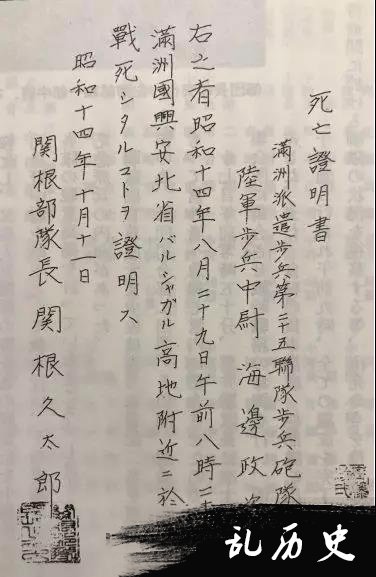 死亡證明書
滿洲派遣步兵第二十五聯隊步兵砲隊
陸軍步兵中尉 海邊政次
右之者昭和十四年八月二十九日午前八時二十
滿洲國興安北省バルシャガル高地附近ニ於
戰死シタルコトヲ證明ス
昭和十四年十月十一日
関根部隊長 関根久太郎
乱历史